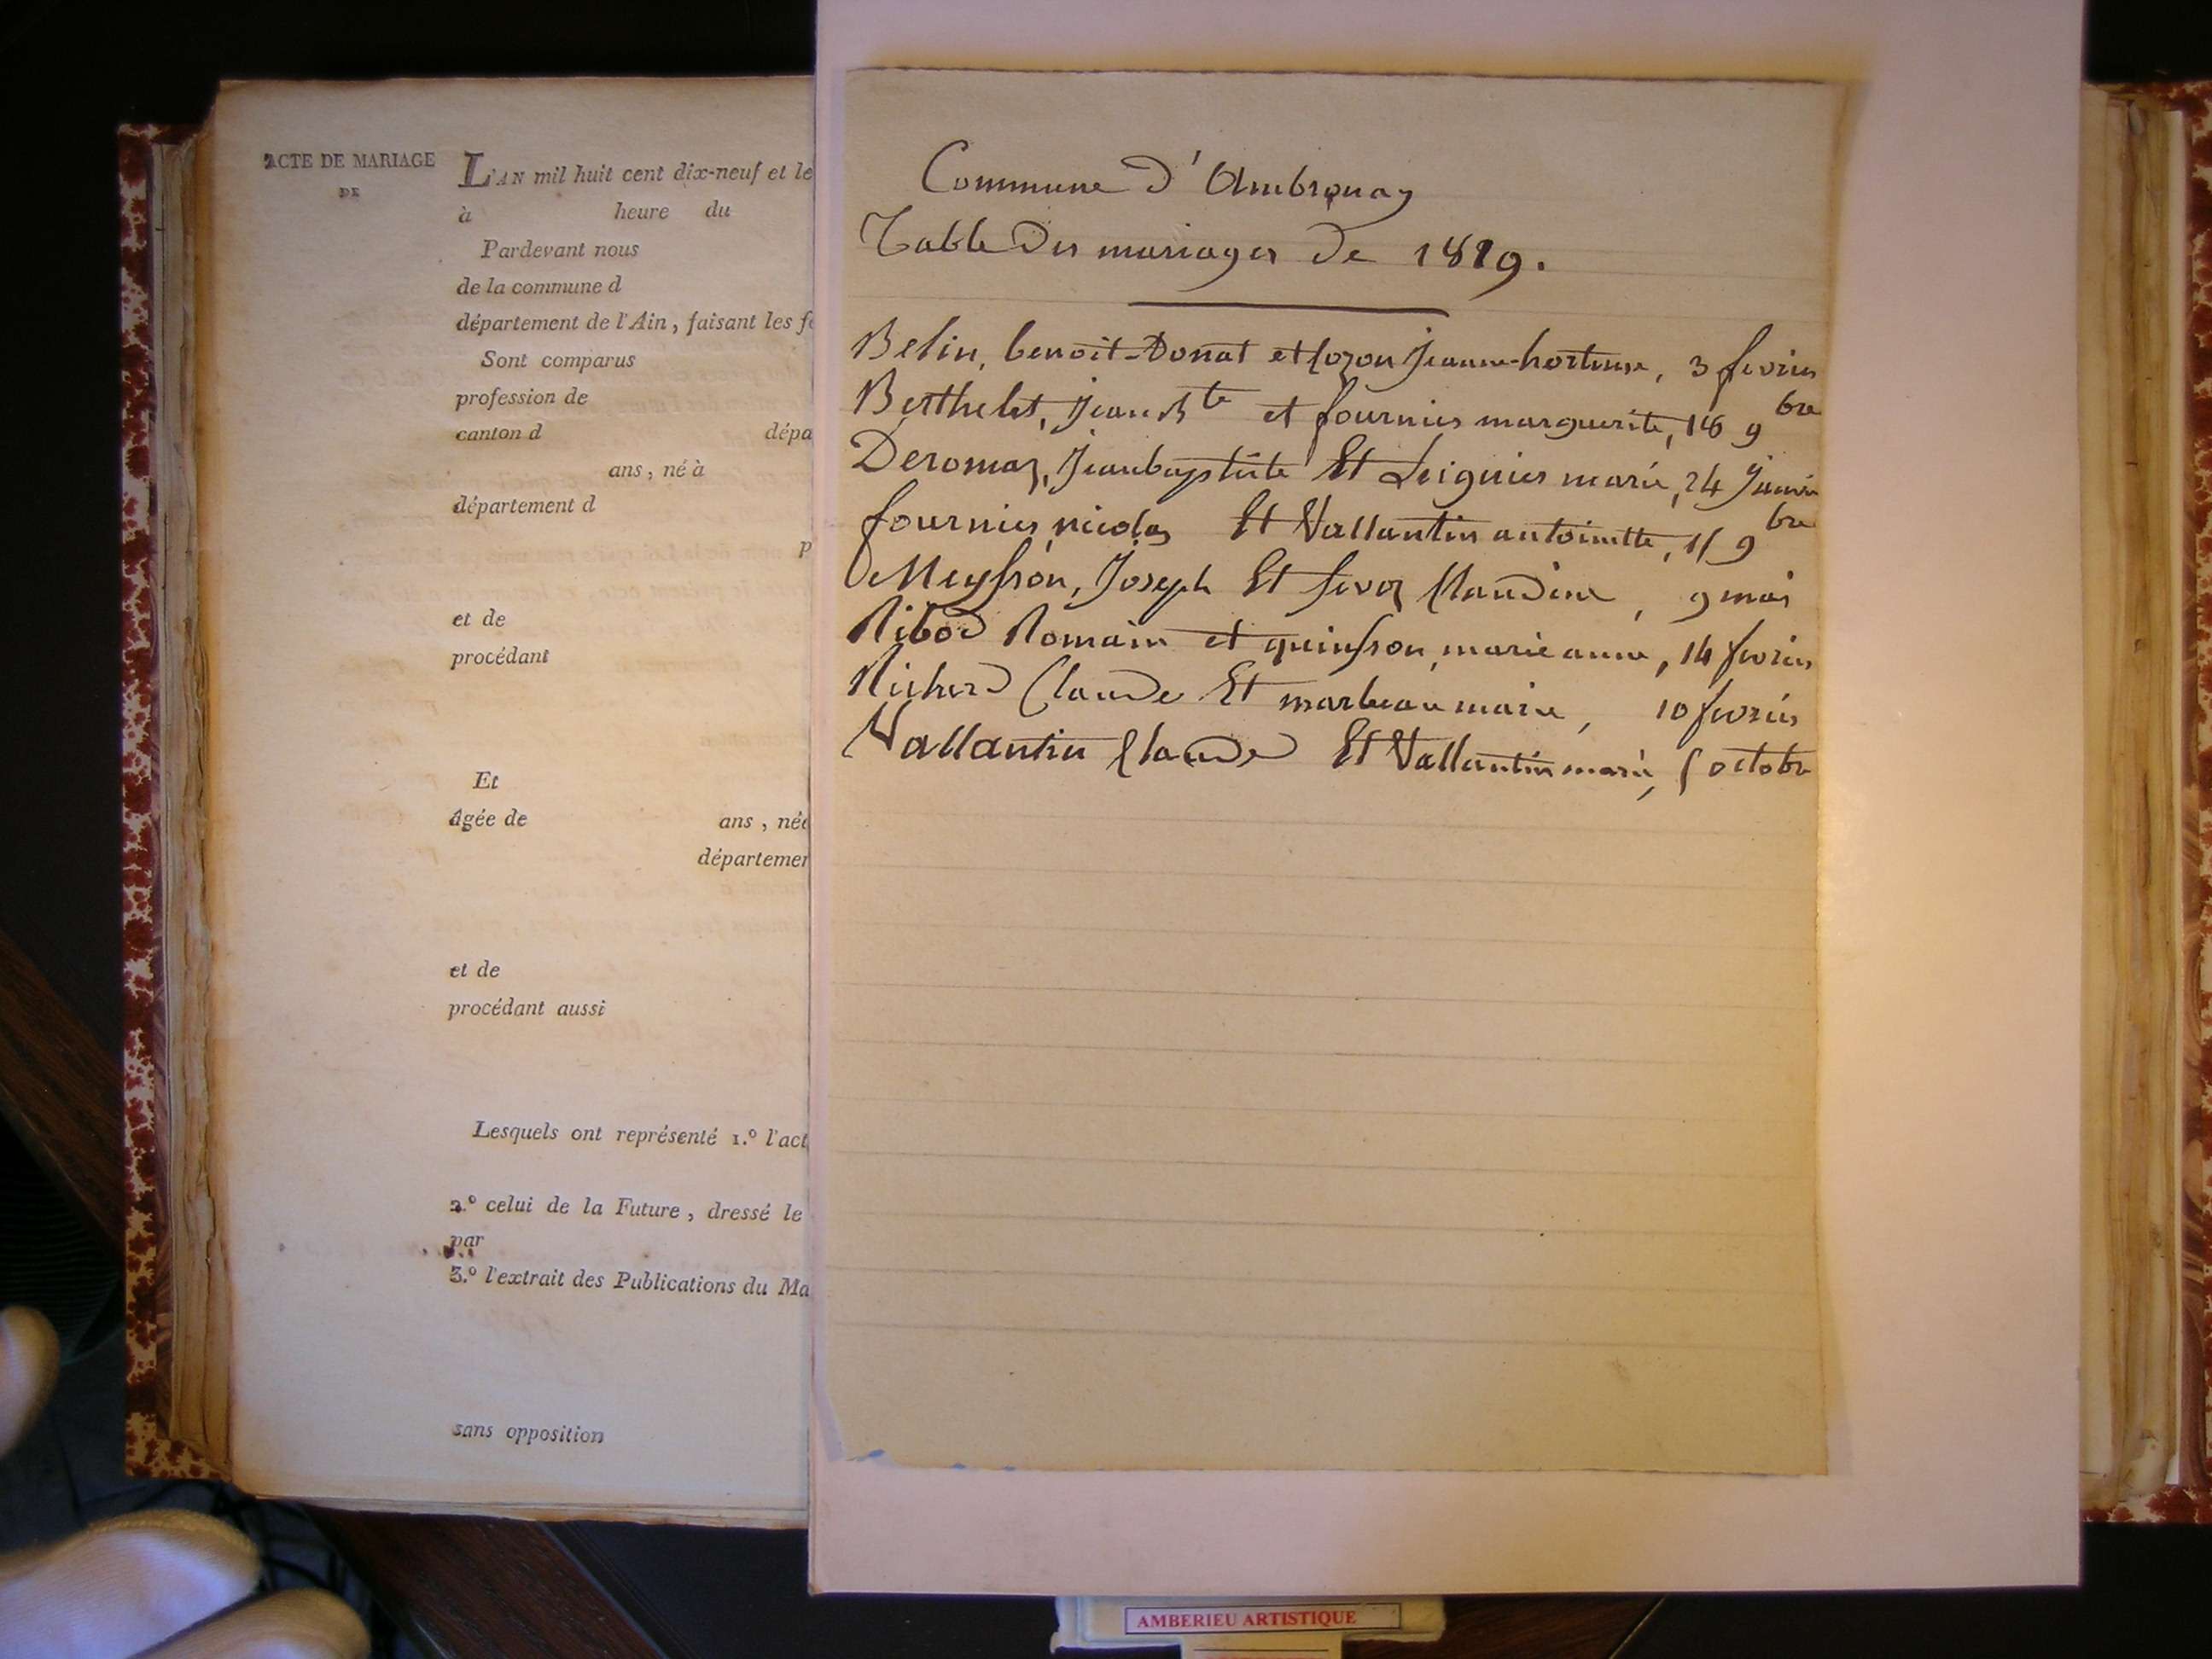 ACTE DE MARIAGE
DE
L'AN mil huit cent dix-neuf et le
à heure du
Pardevant nous
de la commune d
département de l'Ain, faisant les f
Sont comparus
profession de
canton d dépa
ans, né à
département d
P
et de
procédant
Et
Agée de ans, née
départemen
et de
procédant aussi
Lesquels ont représenté 1.º l'act
2.º celui de la Future, dressé le
par
3.º l'extrait des Publications du Ma
sans opposition
Commune d'Ambronay
Table des mariages de 1819.
Belin, benoit-Donat et Cozon Jeanne-hortense, 3 fevrier
Berthelet, Jean Bte et fournier marguerite, 18 9bre
Deromas, Jeanbaptiste Et Leignier marie, 24 Janvier
fournier, nicolas Et Vallantin antoinette, 15 9bre
Meysson, Joseph Et Claudine, 9 mai
Ribod Romain et quinsson marie anne, 14 fevrier
Richerd Claude Et marbeau marie, 10 fevrier
Vallantin Claude Et Vallantin marie, 5 octobre
AMBERIEU ARTISTIQUE